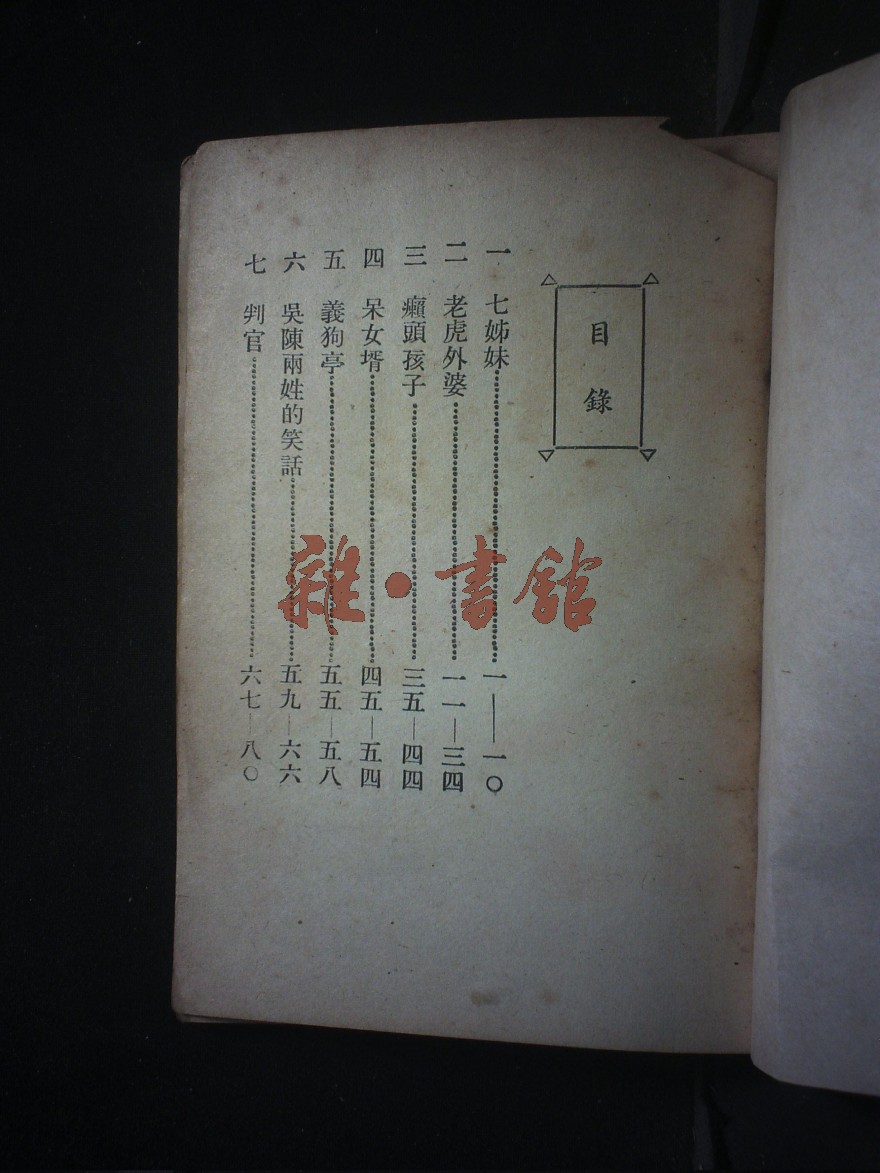 目錄
一 七姊妹……一——一〇
二 老虎外婆……一一—三四
三 癩頭孩子……三五—四四
四 呆女壻……四五—五四
五 義狗亭……五五—五八
六 吳陳兩姓的笑話……五九—六六
七 判官……六七—八〇
雜·書館